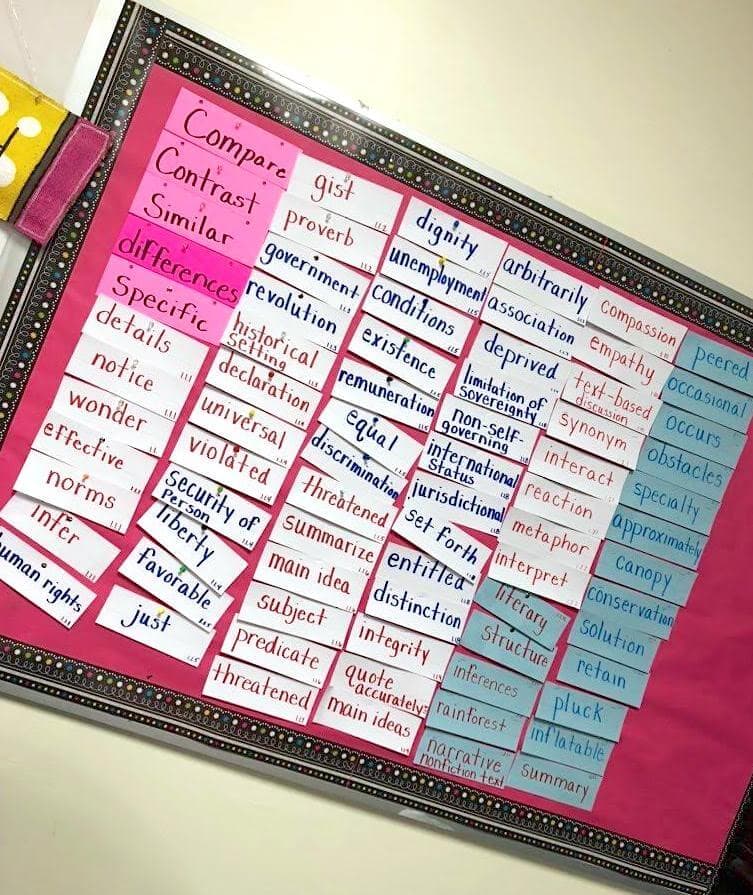 Compare
Contrast
Similar
differences
Specific
details
notice
wonder
effective
norms
infer
human rights
gist
proverb
government
revolution
historical
setting
declaration
universal
violated
security of
Person
liberty
favorable
just
dignity
unemployment
conditions
existence
remuneration
equal
discrimination
threatened
summarize
main idea
subject
predicate
threatened
arbitrarily
association
deprived
limitation of
Sovereignty
non-self-
governing
international
status
jurisdictional
set forth
entitled
distinction
integrity
quote
accurately
main ideas
Compassion
empathy
text-based
discussion
synonym
interact
reaction
metaphor
interpret
literary
structure
inferences
rainforest
narrative
nonfiction text
peered
occasional
occurs
obstacles
specialty
approximately
canopy
conservation
solution
retain
pluck
inflatable
summary